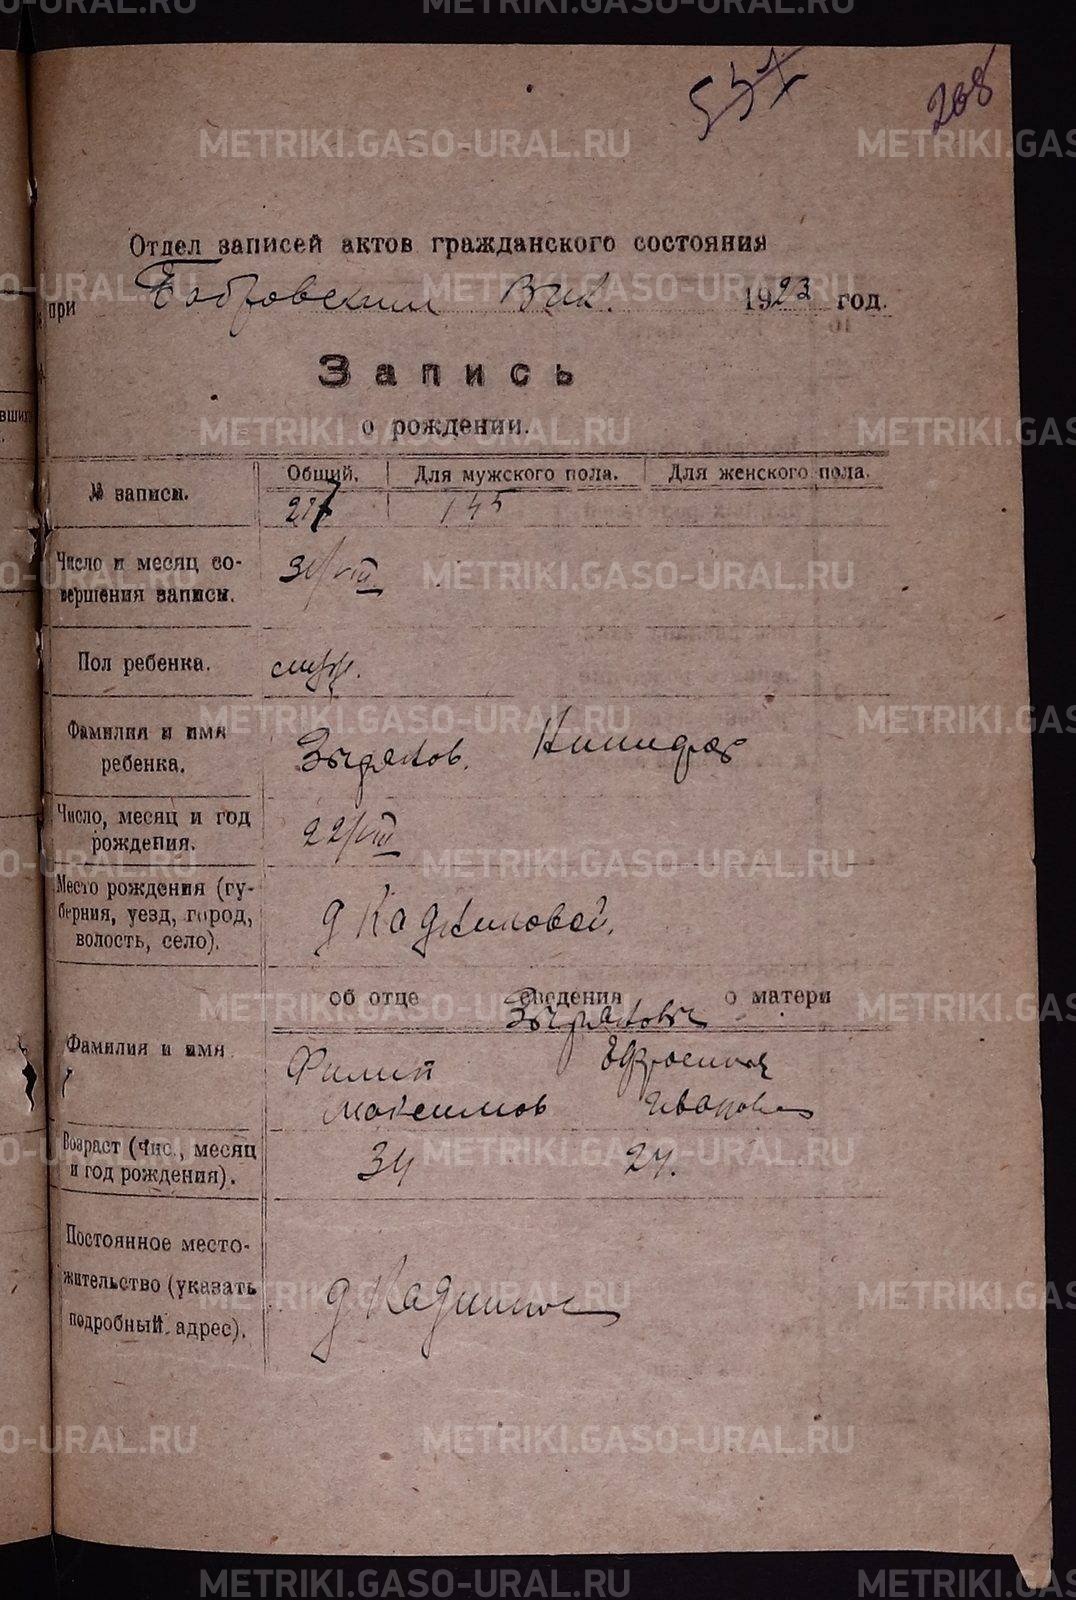 METRIKI.GASO-URAL.RU
208
Отдел записей актов гражданского состояния
при Бобровским Вик. 1923 год.
Запись
о рождении.
№ записи.
Общий. Для мужского пола. Для женского пола.
217 145
Число и месяц со-
вершения записи.
31/VIII
Пол ребенка.
муж.
Фамилия и имя
ребенка.
Зырянов. Никифор
Число, месяц и год
рождения.
22/VIII
Место рождения (гу-
берния, уезд, город,
волость, село).
д Кадниковой.
об отце сведения о матери
Зыряновы
Фамилия и имя
Филип Ефросинья
Максимов Иванова
Возраст (чис., месяц
и год рождения).
34 24.
Постоянное место-
жительство (указать
подробный адрес).